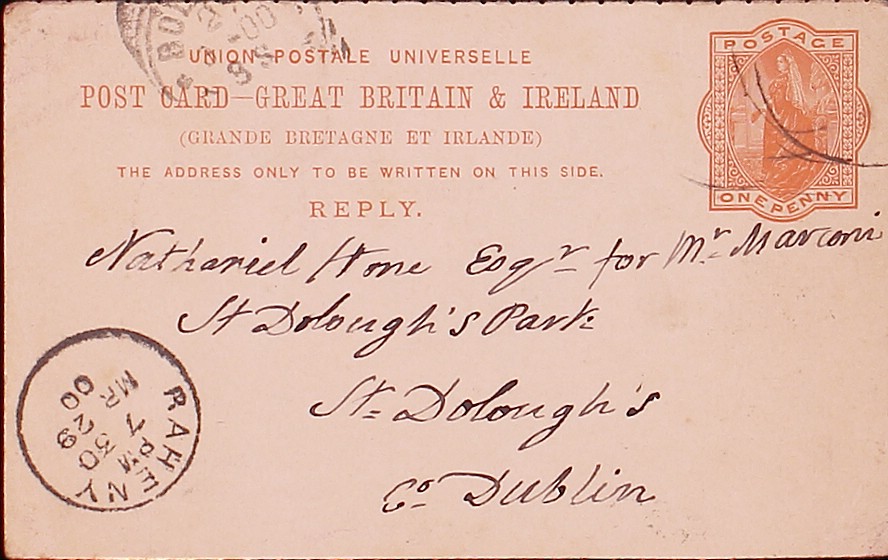 UNION POSTALE UNIVERSELLE
POST CARD—GREAT BRITAIN & IRELAND
(GRANDE BRETAGNE ET IRLANDE)
THE ADDRESS ONLY TO BE WRITTEN ON THIS SIDE.
REPLY.
POSTAGE
ONE PENNY
Nathaniel Hone Esqr for Mr Marconi
St Dolough's Park
St Dolough's
Co Dublin
RAHENY
7 30 PM
MR 29
00